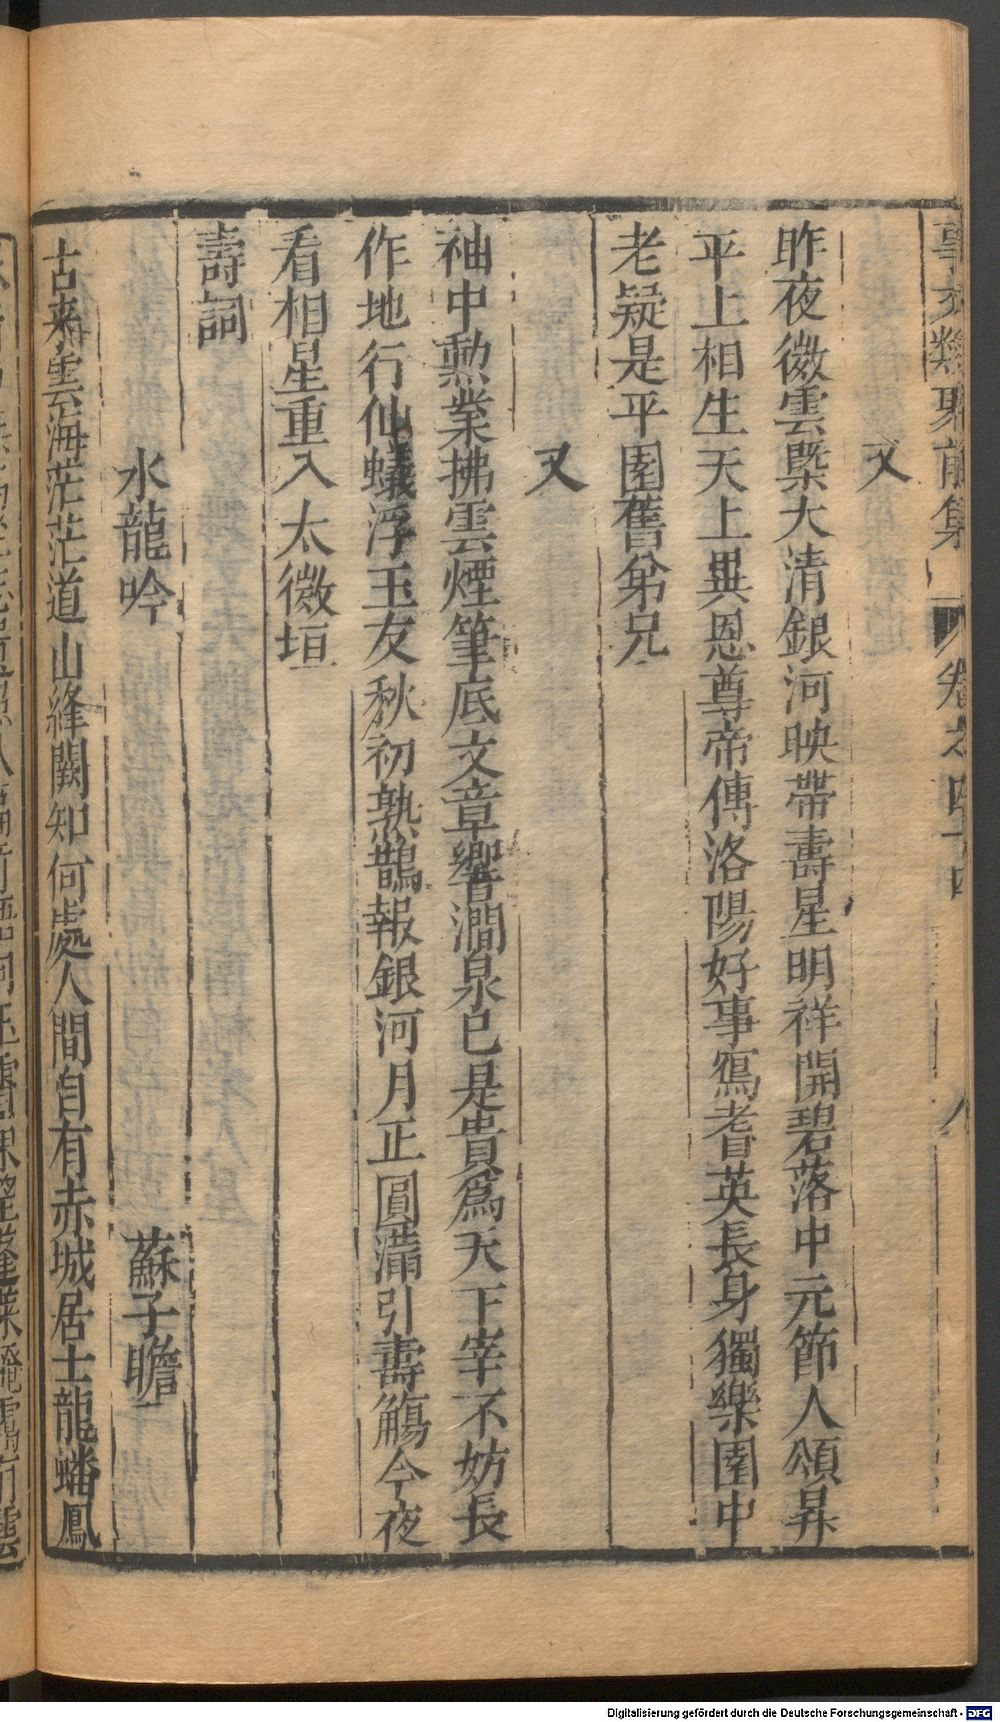 事文類聚前集 卷之四十四 八
又
昨夜微雲槩大清銀河映帶壽星明祥開碧落中元節人頌昇
平上相生天上異恩尊帝傳洛陽好事寫耆英長身獨樂園中
老疑是平園舊弟兄
又
袖中勲業拂雲煙筆底文章響澗泉已是貴爲天下宰不妨長
作地行仙蟻浮玉友秋初熟鵲報銀河月正圓滿引壽觴今夜
看相星重入太微垣
壽詞
水龍吟 蘇子瞻
古来雲海茫茫道山絳闕知何處人間自有赤城居士龍蟠鳳
Digitalisierung gefördert durch die Deutsche Forschungsgemeinschaft - DFG